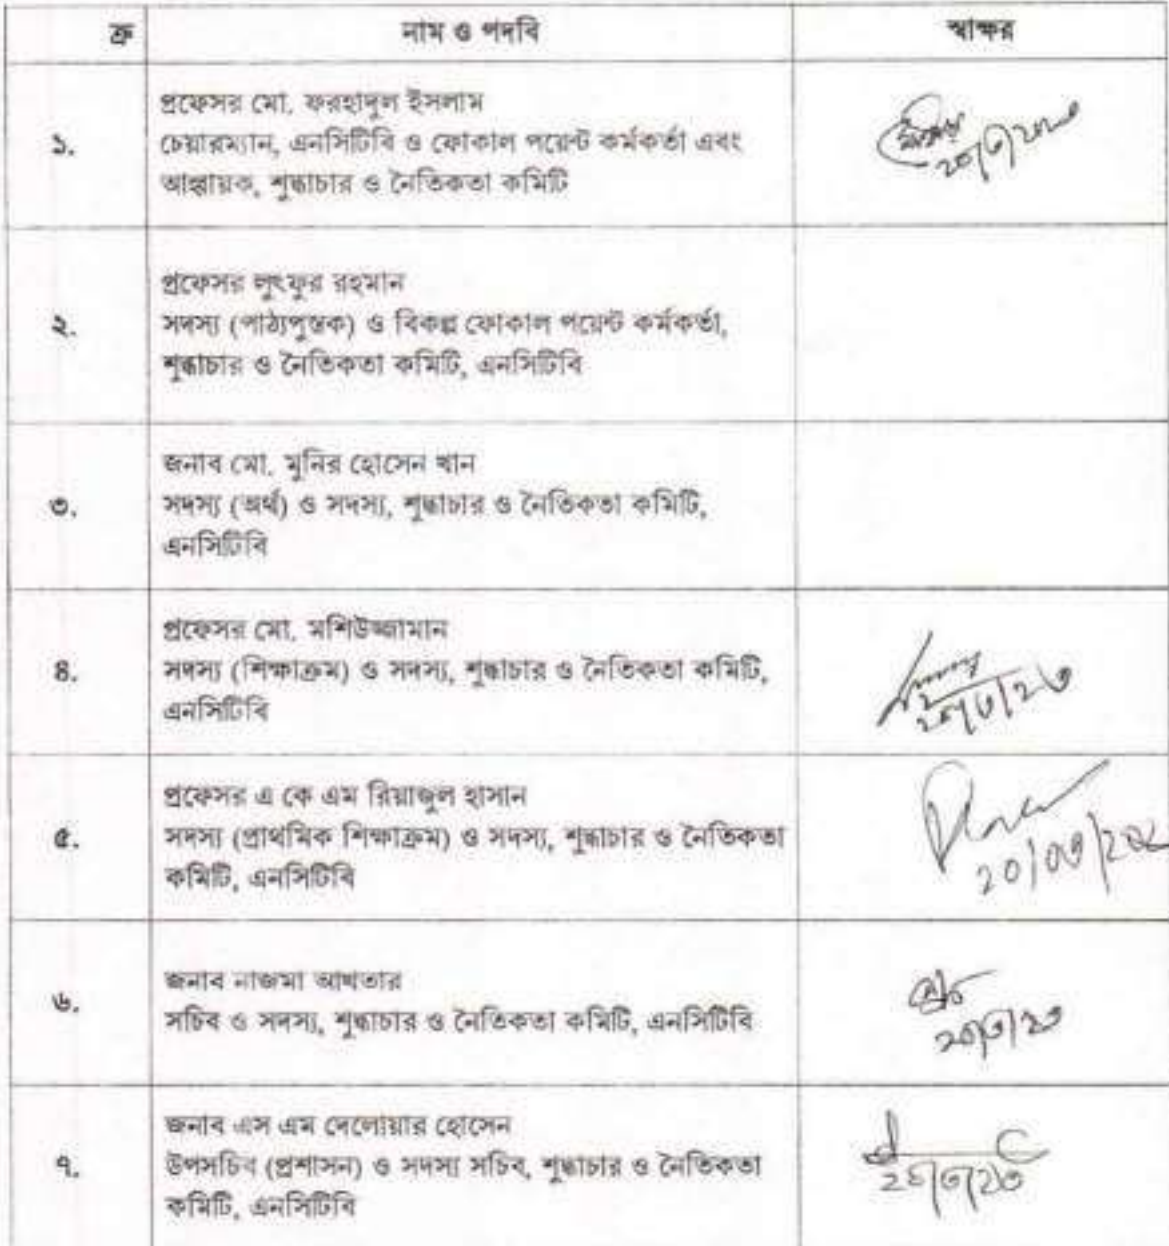 ক্র নাম ও পদবি স্বাক্ষর
১. প্রফেসর মো. ফরহাদুল ইসলাম
চেয়ারম্যান, এনসিটিবি ও ফোকাল পয়েন্ট কর্মকর্তা এবং
আহ্বায়ক, শুদ্ধাচার ও নৈতিকতা কমিটি
২. প্রফেসর লুৎফুর রহমান
সদস্য (পাঠ্যপুস্তক) ও বিকল্প ফোকাল পয়েন্ট কর্মকর্তা,
শুদ্ধাচার ও নৈতিকতা কমিটি, এনসিটিবি
৩. জনাব মো. মুনির হোসেন খান
সদস্য (অর্থ) ও সদস্য, শুদ্ধাচার ও নৈতিকতা কমিটি,
এনসিটিবি
৪. প্রফেসর মো. মশিউজ্জামান
সদস্য (শিক্ষাক্রম) ও সদস্য, শুদ্ধাচার ও নৈতিকতা কমিটি,
এনসিটিবি
৫. প্রফেসর এ কে এম রিয়াজুল হাসান
সদস্য (প্রাথমিক শিক্ষাক্রম) ও সদস্য, শুদ্ধাচার ও নৈতিকতা
কমিটি, এনসিটিবি
৬. জনাব নাজমা আখতার
সচিব ও সদস্য, শুদ্ধাচার ও নৈতিকতা কমিটি, এনসিটিবি
৭. জনাব এস এম দেলোয়ার হোসেন
উপসচিব (প্রশাসন) ও সদস্য সচিব, শুদ্ধাচার ও নৈতিকতা
কমিটি, এনসিটিবি